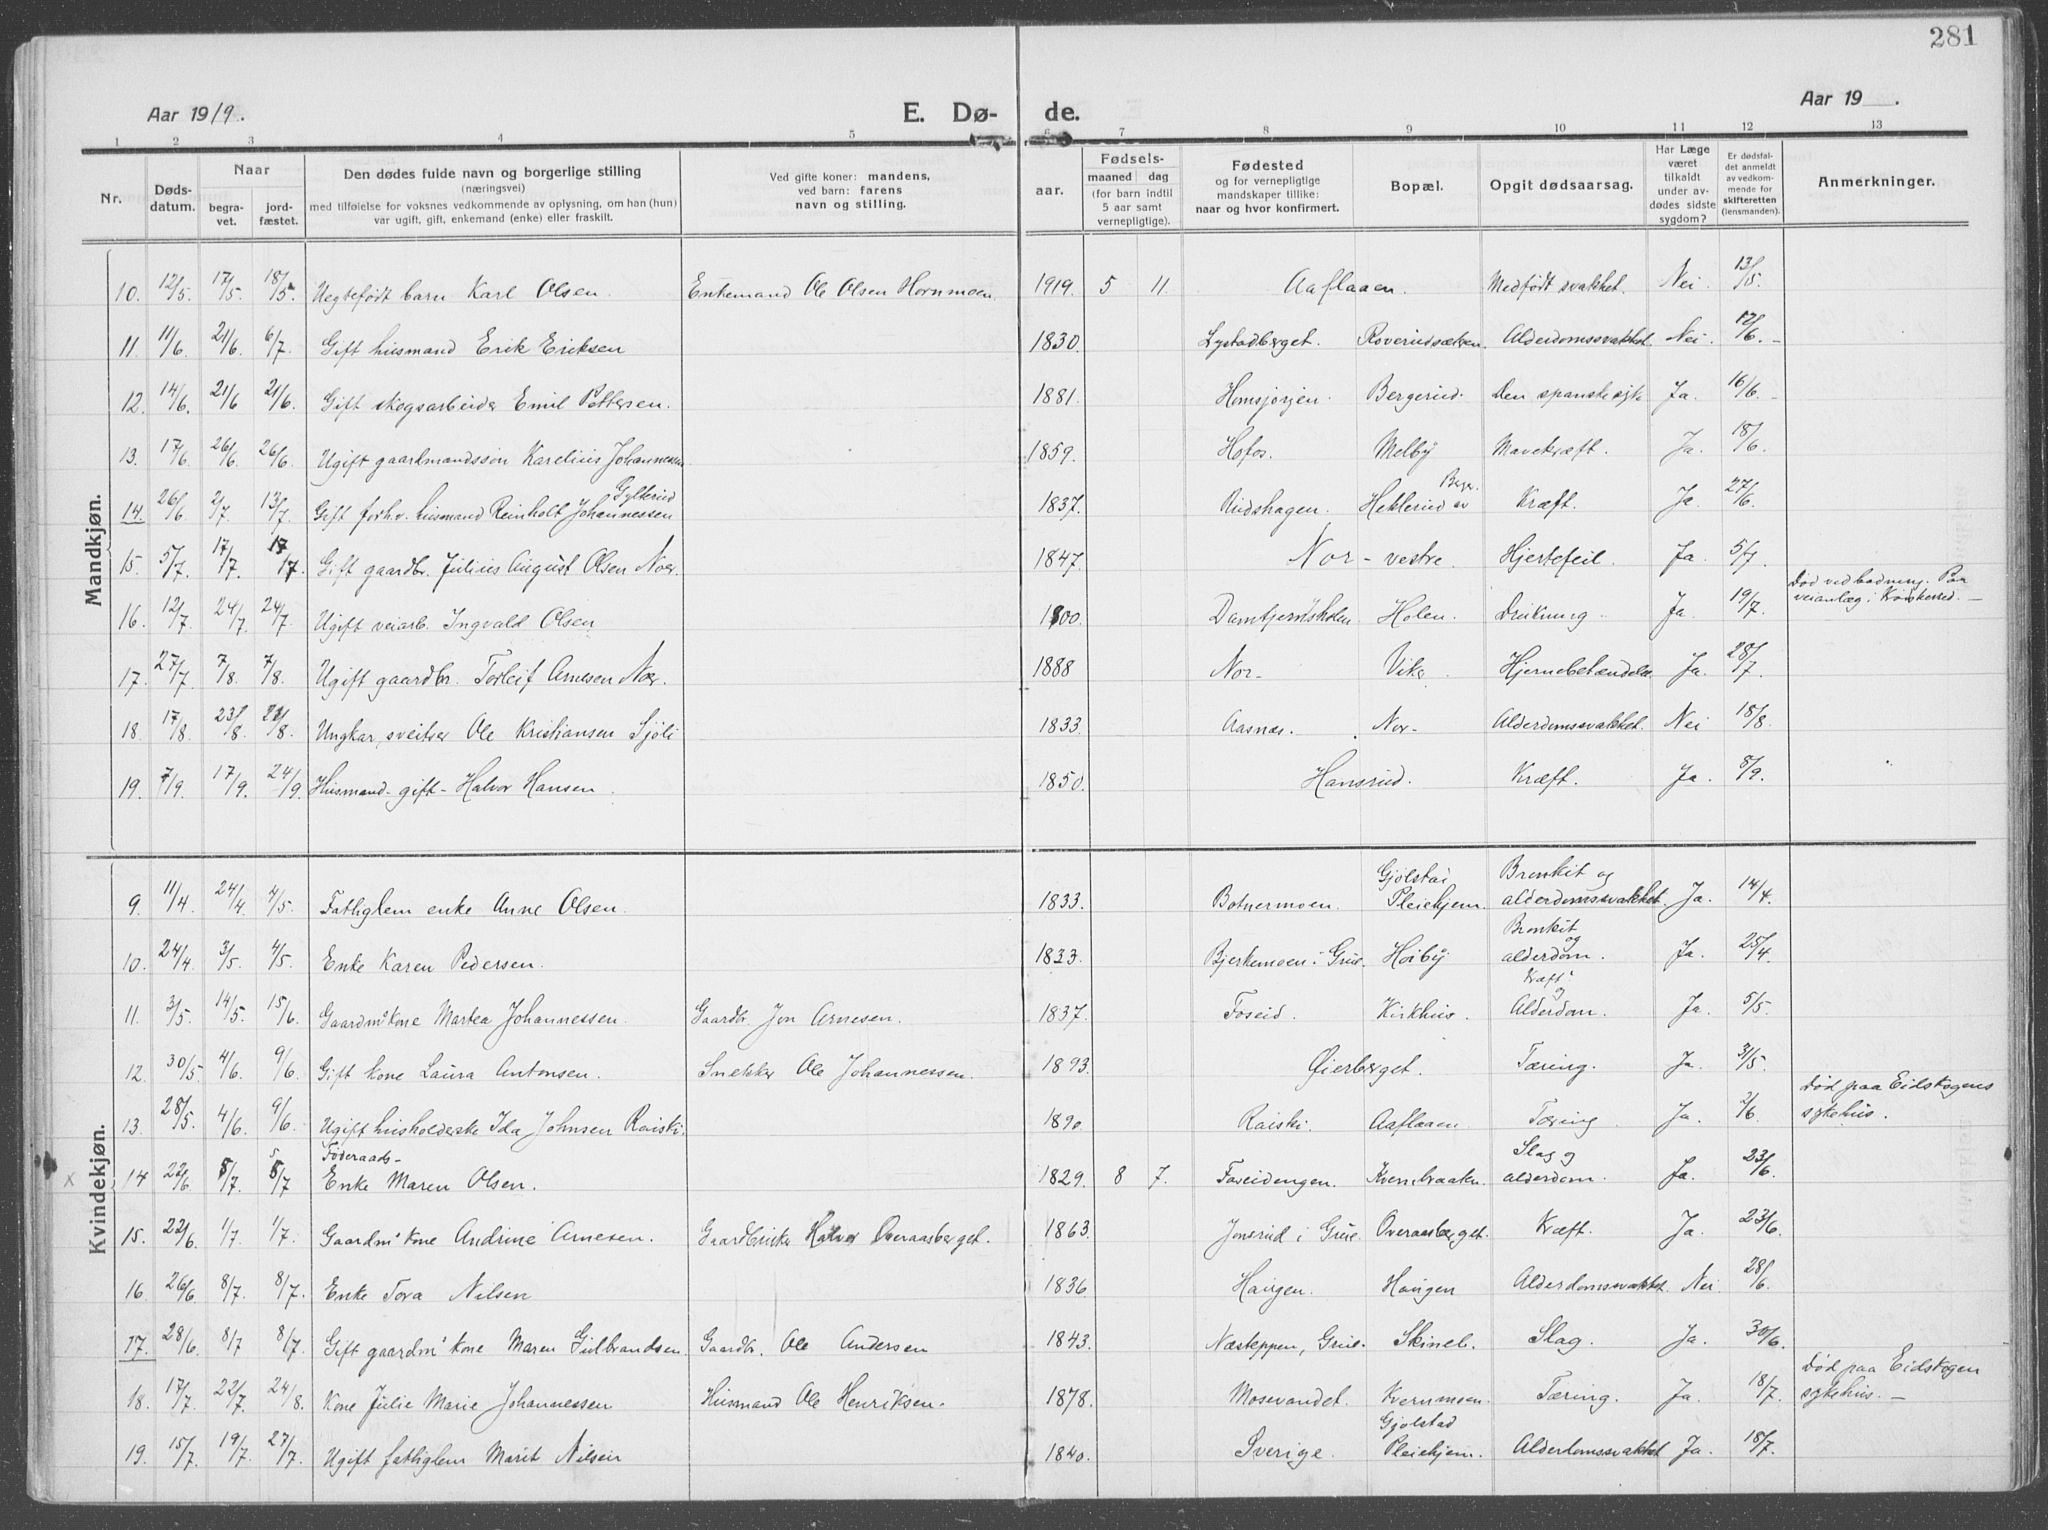 281
Aar 1919. E. Dø- de. Aar 19 .
1 2 3 4 5 6 7 8 9 10 11 12 13
Nr.
Døds-
datum.
Naar
begra-
vet.
jord-
fæstet.
Den dødes fulde navn og borgerlige stilling
(næringsvei)
med tilføielse for voksnes vedkommende av oplysning, om han (hun)
var ugift, gift, enkemand (enke) eller fraskilt.
Ved gifte koner: mandens,
ved barn: farens
navn og stilling.
aar.
Fødsels-
maaned dag
(for barn indtil
5 aar samt
vernepligtige).
Fødested
og for vernepligtige
mandskaper tillike:
naar og hvor konfirmert.
Bopæl.
Opgit dødsaarsag.
Har Læge
været
tilkaldt
under av-
dødes sidste
sygdom?
Er dødsfal-
det anmeldt
av vedkom-
mende for
skifteretten
(lensmanden).
Anmerkninger.
Mandkjøn.
10. 12/5. 17/5. 18/5 Uegtefødt barn Karl Olsen. Enkemand Ole Olsen Hornmoen. 1919. 5 11 Aaflaaen. Medfödt svakhet. Nei. 13/5.
11. 11/6 21/6. 6/7. Gift husmand Erik Eriksen 1830. Lystadberget. Roverudsæteren. Alderdomssvakhet. Nei. 12/6. -
12. 14/6. 21/6 21/6. Gift skogsarbeider Emil Pettersen. 1881. Homsjøijen. Bergerud. Den spanske syke Ja. 16/6. -
13. 17/6. 26/6. 26/6. Ugift gaardmandssön Karelius Johannessen 1859. Hofos. Melby Mavekræft. Ja. 18/6.
14. 26/6. 2/7. 13/7. Gift forhv. husmand Reinholt Johannessen Gylterud 1837. Rudshagen. Hekleried av Berger. Kræft. Ja. 27/6.
15. 5/7. 17/7. 17/7. Gift gaardbr. Julius August Olsen Noer. 1847. Nor - vestre. Hjertefeil. Ja. 5/7.
16. 12/7. 24/7. 24/7. Ugift veiarb. Ingvald Olsen 1900. Damtjernsholen. Holen. Drukning. Ja. 19/7. Död ved badning. Paa
veianlæg i -
17. 27/7. 7/8. 7/8. Ugift gaardbr. Torleif Arnesen Noer. 1888 Nor- Viker Hjernebetændelse Ja. 28/7.
18. 17/8. 23/8 23/8. Ungkar, sveitser Ole Kristiansen Sjöli 1833. Aasnæs. Nor- Alderdomssvakhet. Nei 18/8.
19. 7/9. 17/9. 24/9. Husmand - gift - Halvor Hansen. 1850. Hansrud. Kræft. Ja. 8/9.
Kvindekjøn.
9. 11/4. 24/4. 4/5. Fattiglem enke Anne Olsen. 1833. Botnermoen. Gjölstad Pleiehjem. Bronkit og alderdomssvakhet. Ja. 14/4.
10. 24/4 3/5. 4/5. Enke Karen Pedersen. 1833. Bjerkemoen i Grue. Höiby Bronkit og alderdom. Ja. 25/4.
11. 3/5. 14/5. 15/6. Gaardm's kone Martea Johannessen. Gaardbr. Jon Arnesen. 1837. Foseid. Kirkhus. Kræft og Alderdom. Ja. 5/5.
12. 30/5. 4/6. 9/6. Gift kone Laura Antonsen. Snekker Ole Johannessen. 1893. Øierberget. Tæring. Ja. 31/5.
13. 28/5. 4/6. 9/6. Ugift husholderske Ida Johnsen Roiski. 1890. Roiski. Aaflaaen. Tæring Ja. 2/6. Död paa Eidskogens
sykehus.
x 14 22/6. 5/7. 5/7 Föderaads-
Enke Maren Olsen. 1829. 8 7. Foseidengen. Kvernbraaten. Slag og alderdom. Ja. 23/6.
15. 22/6. 1/7. 1/7. Gaardm's kone Andrine Arnesen. Gaardbruker Halvor Overaasberget. 1863. Jonsrud i Grue. Overaasberget. Kræft. Ja. 23/6.
16. 26/6. 8/7. 8/7. Enke Tora Nilsen 1836 Haugen. Haugen Alderdomssvakhet. Nei 28/6.
17. 28/6. 8/7 8/7. Gift gaardm's kone Maren Gulbrandsen. Gaardbr. Ole Andersen 1843. Næskeppen, Grue. Skineb. Slag. Ja. 30/6.
18. 17/7. 22/7. 24/8. Kone Julie Marie Johannessen Husmand Ole Henriksen. 1878. Mosevandet. Kvernmoen. Tæring. Ja. 18/7. Död paa Eidskogen
sykehus. -
19. 15/7. 19/7. 27/7. Ugift fattiglem Marit Nilsen 1840. Sverige. Gjölstad Pleiehjem. Alderdomssvakhet Ja. 18/7.